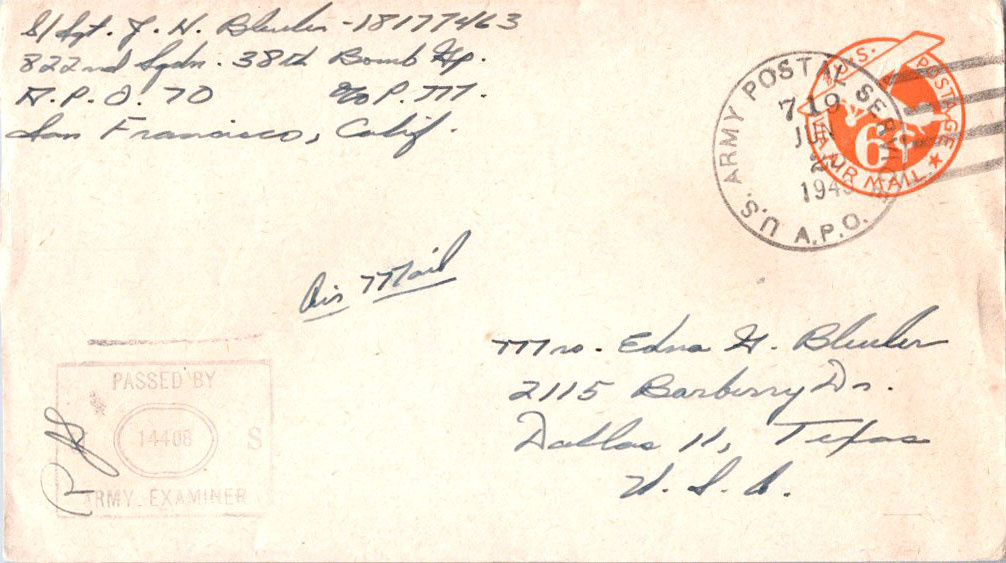 S/Sgt. J. H. Bleuler - 18177463
822nd Sqdn. 38th Bomb Gp.
A.P.O. 70 c/o P.M.
San Francisco, Calif.
U.S. ARMY POSTAL SERVICE
7 - 19
JUN
2
194
A.P.O.
U.S. POSTAGE
6¢
VIA AIR MAIL
Air Mail
Mrs. Edna H. Bleuler
2115 Barberry Dr.
Dallas 11, Texas
U. S. A.
PASSED BY
14408 S
ARMY EXAMINER